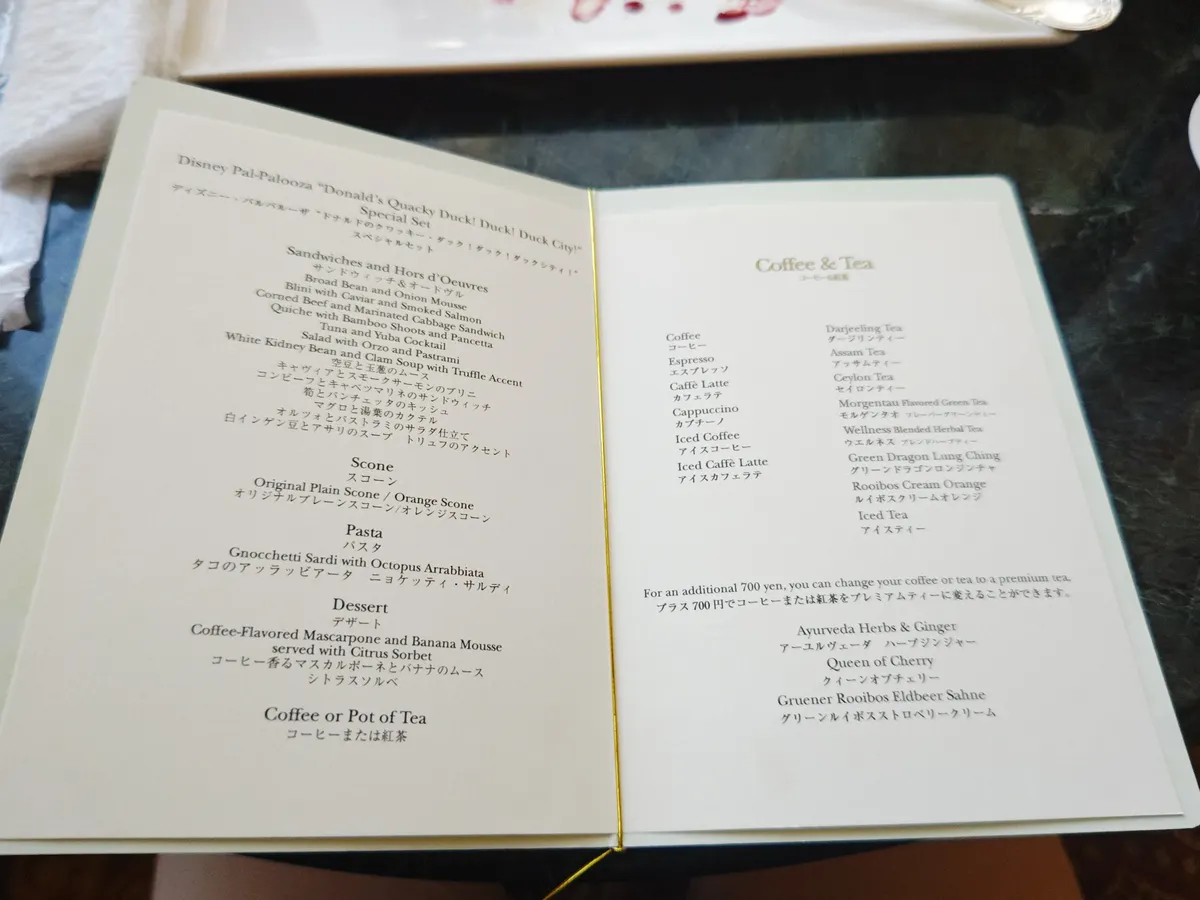 Disney Pal-Palooza "Donald's Quacky Duck! Duck! Duck City!"
Special Set
ディズニー・パルパルーザ "ドナルドのクワッキー・ダック！ダック！ダックシティ！"
スペシャルセット
Sandwiches and Hors d'Oeuvres
サンドウィッチ＆オードヴル
Broad Bean and Onion Mousse
Blini with Caviar and Smoked Salmon
Corned Beef and Marinated Cabbage Sandwich
Quiche with Bamboo Shoots and Pancetta
Tuna and Yuba Cocktail
Salad with Orzo and Pastrami
White Kidney Bean and Clam Soup with Truffle Accent
空豆と玉葱のムース
キャヴィアとスモークサーモンのブリニ
コンビーフとキャベツマリネのサンドウィッチ
筍とパンチェッタのキッシュ
マグロと湯葉のカクテル
オルツォとパストラミのサラダ仕立て
白インゲン豆とアサリのスープ　トリュフのアクセント
Scone
スコーン
Original Plain Scone / Orange Scone
オリジナルプレーンスコーン/オレンジスコーン
Pasta
パスタ
Gnocchetti Sardi with Octopus Arrabbiata
タコのアッラッビアータ　ニョケッティ・サルディ
Dessert
デザート
Coffee-Flavored Mascarpone and Banana Mousse
served with Citrus Sorbet
コーヒー香るマスカルポーネとバナナのムース
シトラスソルベ
Coffee or Pot of Tea
コーヒーまたは紅茶
Coffee & Tea
コーヒー&紅茶
Coffee
コーヒー
Espresso
エスプレッソ
Caffè Latte
カフェラテ
Cappuccino
カプチーノ
Iced Coffee
アイスコーヒー
Iced Caffè Latte
アイスカフェラテ
Darjeeling Tea
ダージリンティー
Assam Tea
アッサムティー
Ceylon Tea
セイロンティー
Morgentau Flavored Green Tea
モルゲンタオ フレーバーグリーンティー
Wellness Blended Herbal Tea
ウエルネス ブレンドハーブティー
Green Dragon Lung Ching
グリーンドラゴンロンジンチャ
Rooibos Cream Orange
ルイボスクリームオレンジ
Iced Tea
アイスティー
For an additional 700 yen, you can change your coffee or tea to a premium tea.
プラス700円でコーヒーまたは紅茶をプレミアムティーに変えることができます。
Ayurveda Herbs & Ginger
アーユルヴェーダ　ハーブジンジャー
Queen of Cherry
クィーンオブチェリー
Gruener Rooibos Eldbeer Sahne
グリーンルイボスストロベリークリーム